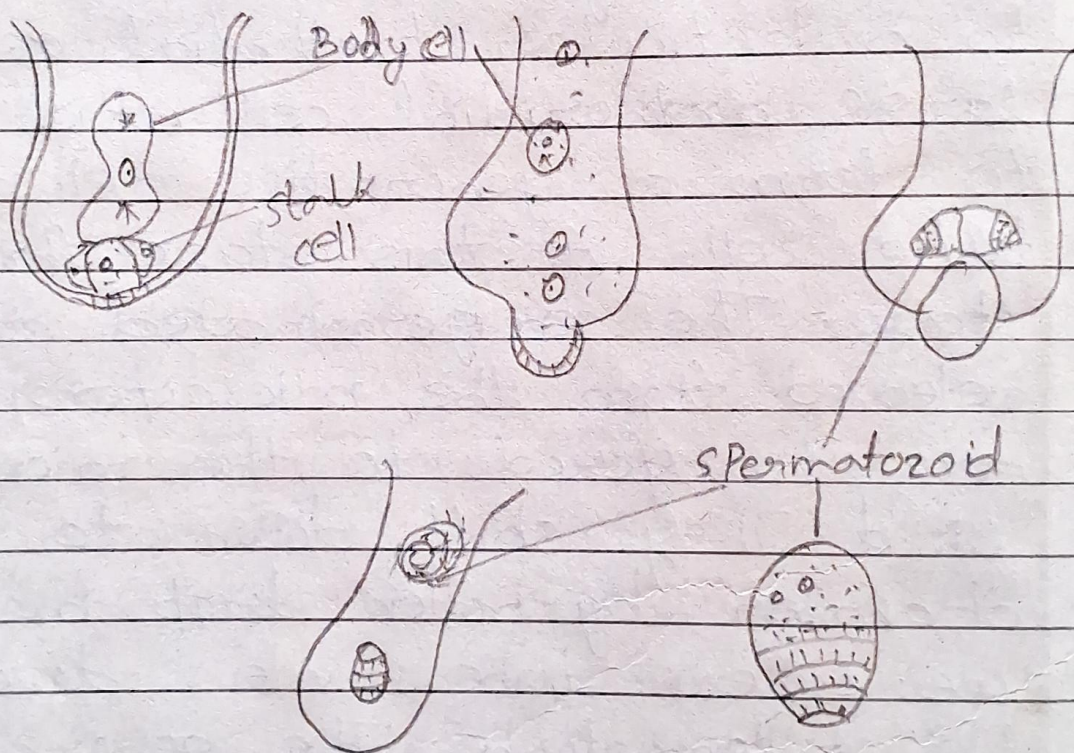 Body cell
stalk
cell
spermatozoid